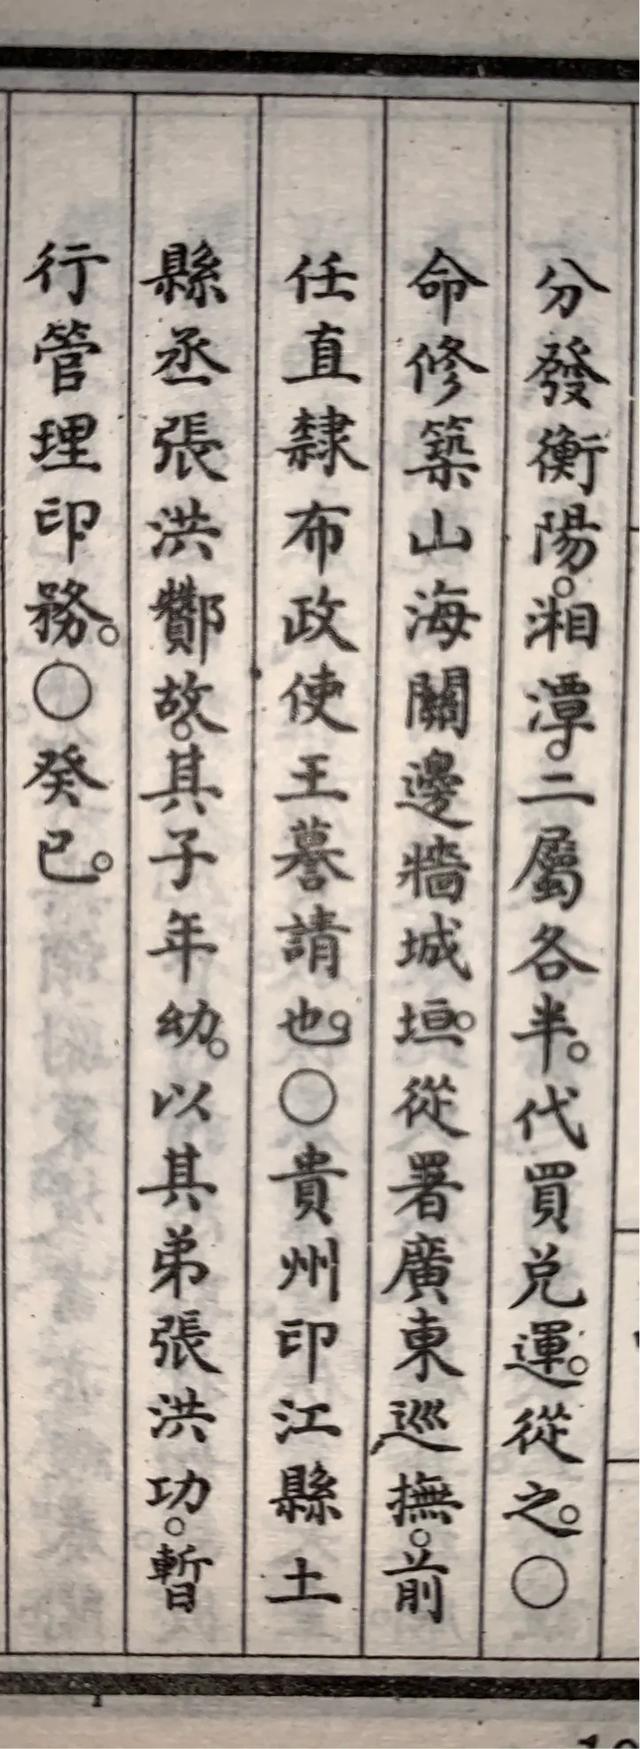 分發衡陽。湘潭。二屬各半。代買兌運。從之。〇
命修築山海關邊牆城垣。從署廣東巡撫。前
任直隸布政使王謩請也。〇貴州印江縣土
縣丞張洪酇故。其子年幼。以其弟張洪功。暫
行管理印務。〇癸巳。